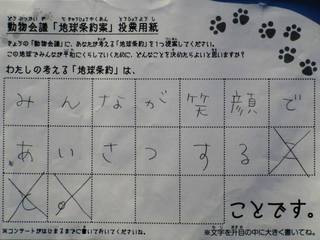 動物会議「地球条約案」投票用紙
きょうの「動物会議」に、あなたが考える「地球条約」を1つ提案してください。
この地球でみんなが平和にくらしていくために、どんなことを決めたらよいと思いますか?
わたしの考える「地球条約」は、
みんなが笑顔で
あいさつすること
。
ことです。
※コンサートがはじまるまでに書いておいてくださいね。
※文字を升目の中に大きく書いてね。